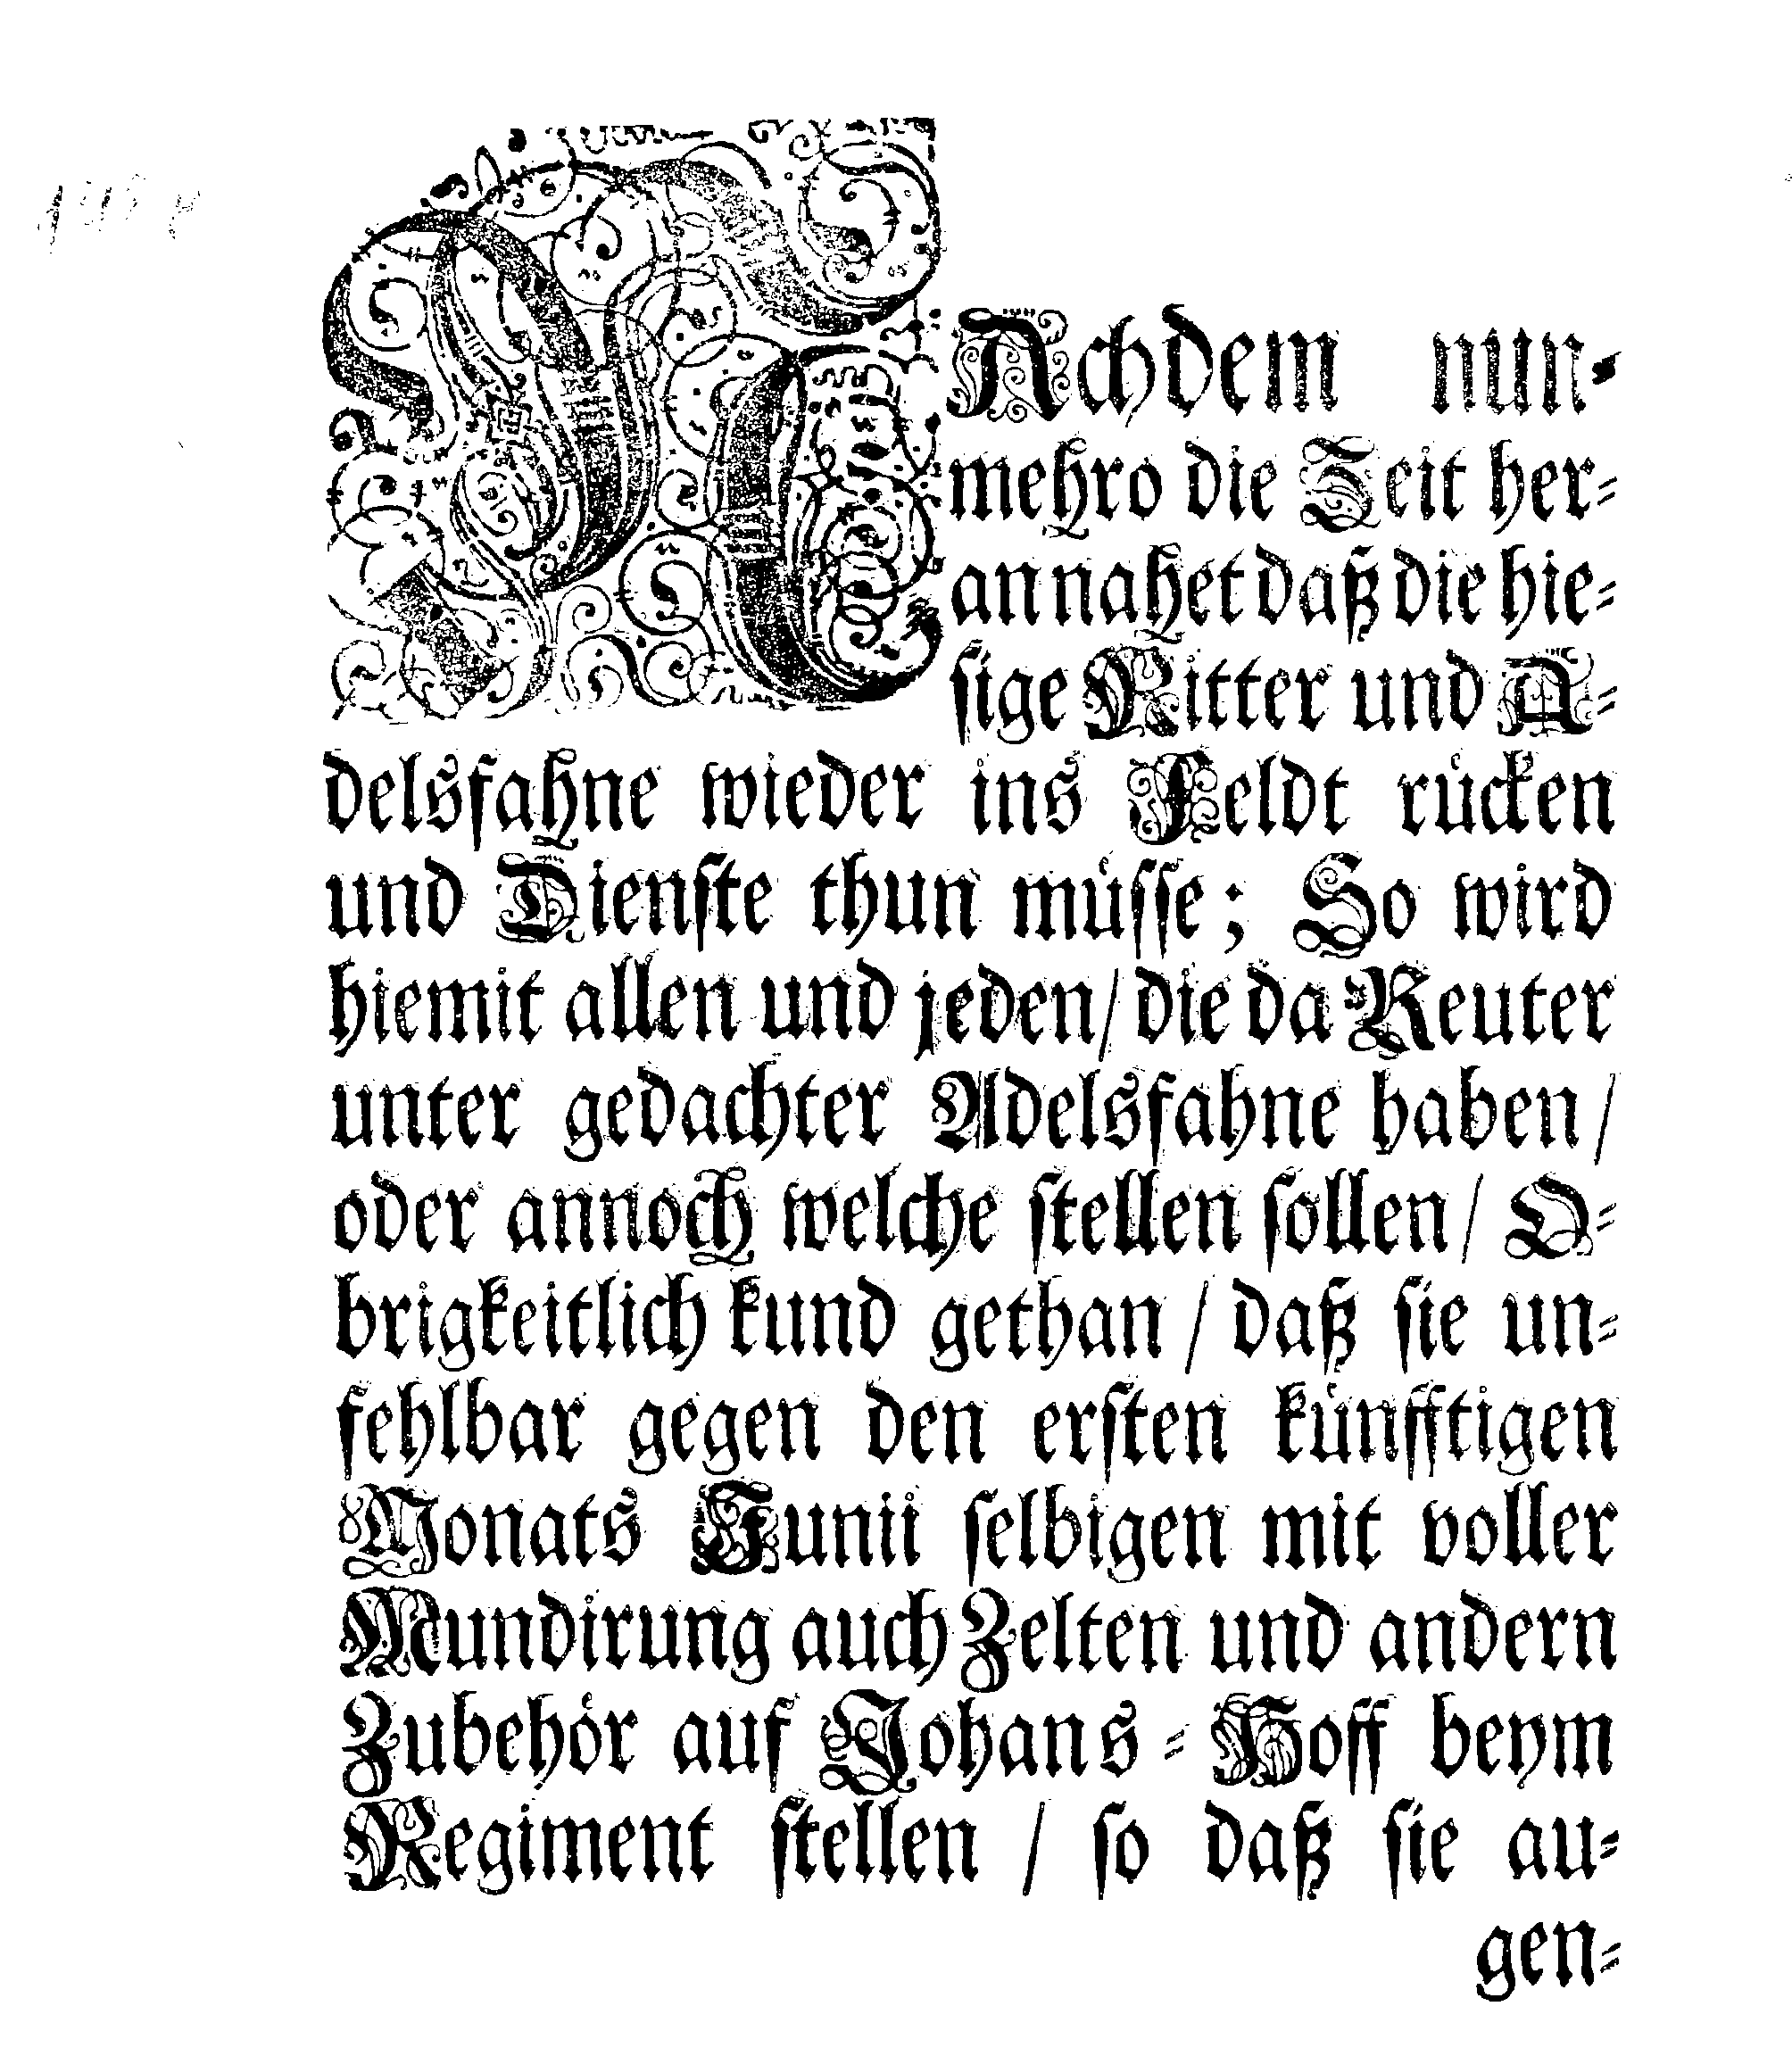 NAchdem nun-
mehro die Zeit her-
annahet daß die hie-
sige Ritter und A-
delsfahne wieder ins Feldt rücken
und Dienste thun müsse; So wird
hiemit allen und jeden/ die da Reuter
unter gedachter Adelsfahne haben/
oder annoch welche stellen sollen/ O-
brigkeitlich kund gethan / daß sie un-
fehlbar gegen den ersten künfftigen
Monats Junii selbigen mit voller
Mundirung auch Zelten und andern
Zubehör auf Johans-Hoff beym
Regiment stellen / so daß sie au-
gen-